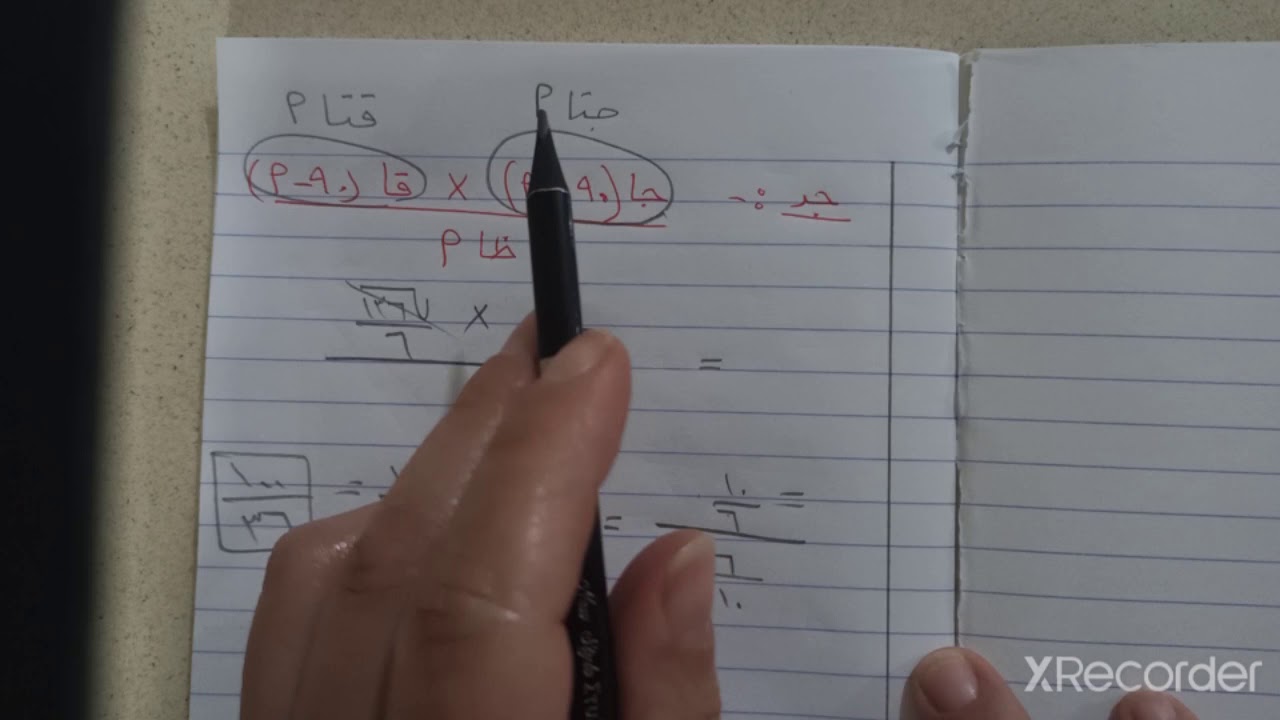 جتا م قتا م
جد :- جا (٩٠ - م) × قا (٩٠ - م)
ظا م
= × √١٣٦ / ٦
= ١٠/٦ = = ١٠٠/٣٦
٦/١٠
XRecorder